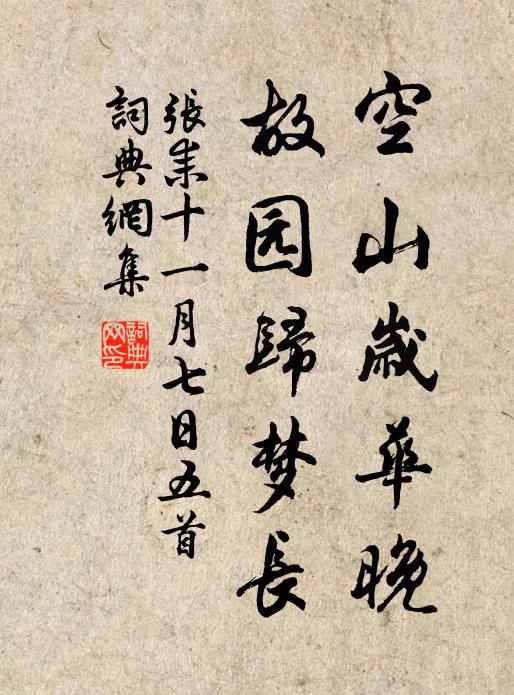 空山歲華晚
故园歸梦長
張耒十一月七日五首
詞典網集
詞典網印